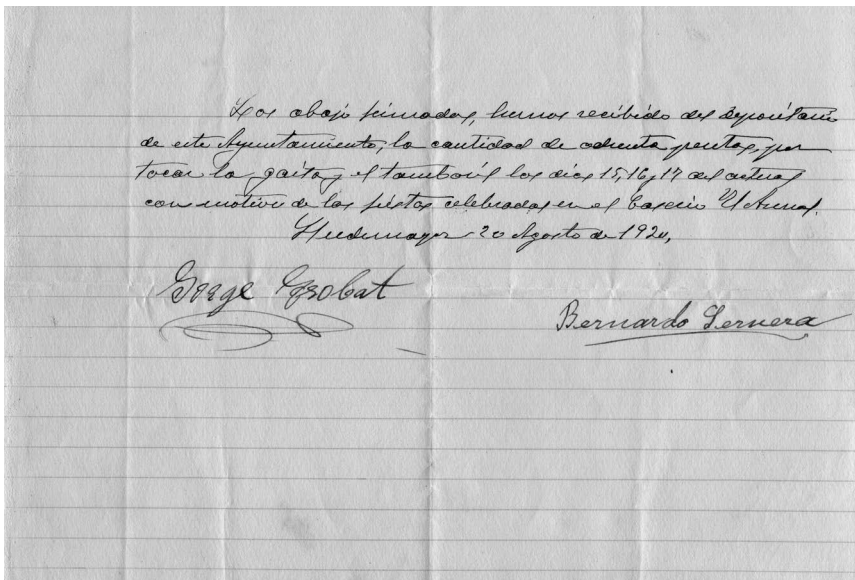 Los abajo firmados, hemos recibido del Depositario
de este Ayuntamiento, la cantidad de ochenta pesetas, por
tocar la gaita y el tamboril los dias 15, 16 y 17 del actual
con motivo de las fiestas celebradas en el Caserio
20 Agosto de 1920,
Bernardo